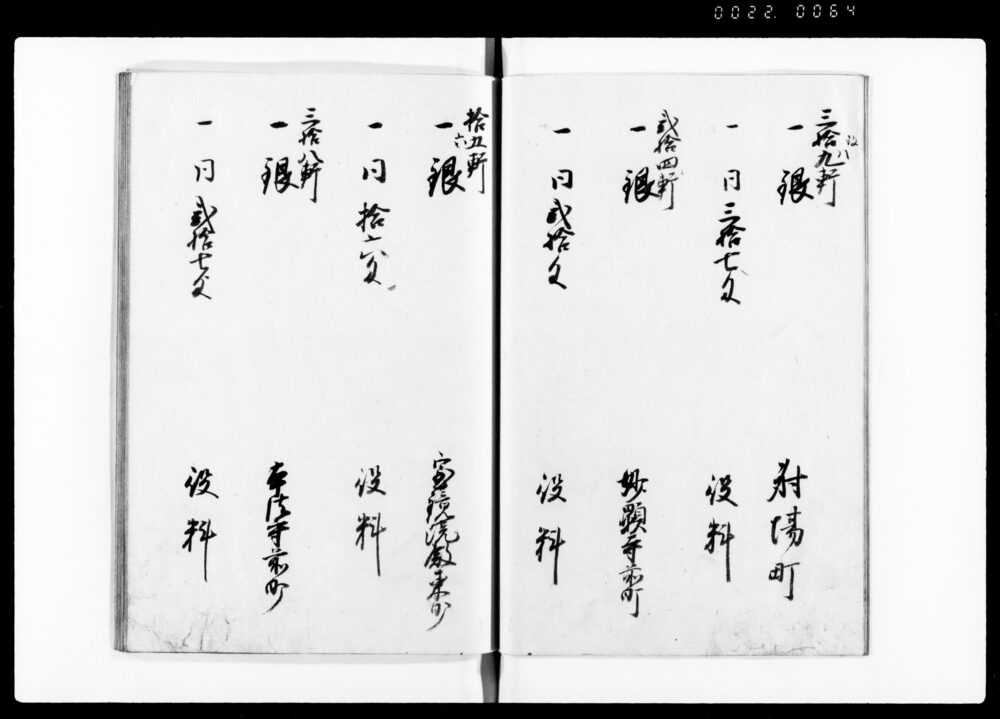 0022. 0064
三拾九軒
改八
一銀 射場町
一同三拾七匁 役料
弐拾四軒
一銀 妙顕寺前町
一同弐拾匁 役料
拾五軒
六
一銀 宝鏡院殿東町
一同拾六匁 役料
三拾八軒
一銀 本法寺前町
一同弐拾七匁 役料